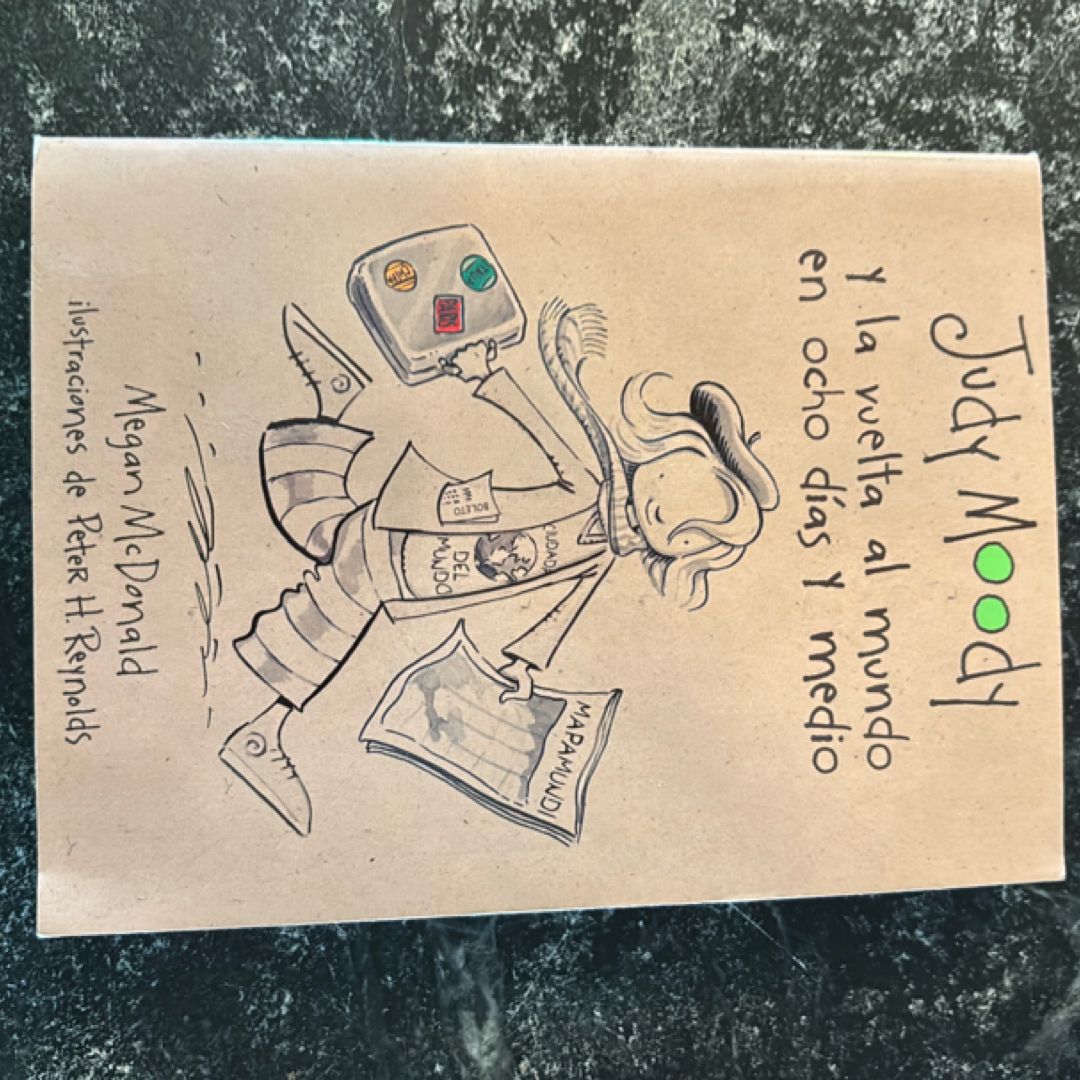 Judy Moody
y la vuelta al mundo
en ocho días y medio
CIUDAD
DEL
MUNDO
BOLETO
MAPAMUNDI
Megan McDonald
ilustraciones de Peter H. Reynolds